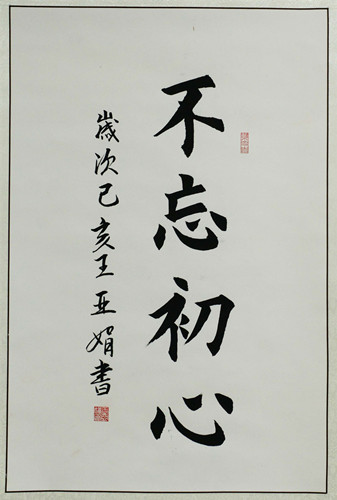 不忘初心
歲次己亥王亚娟書